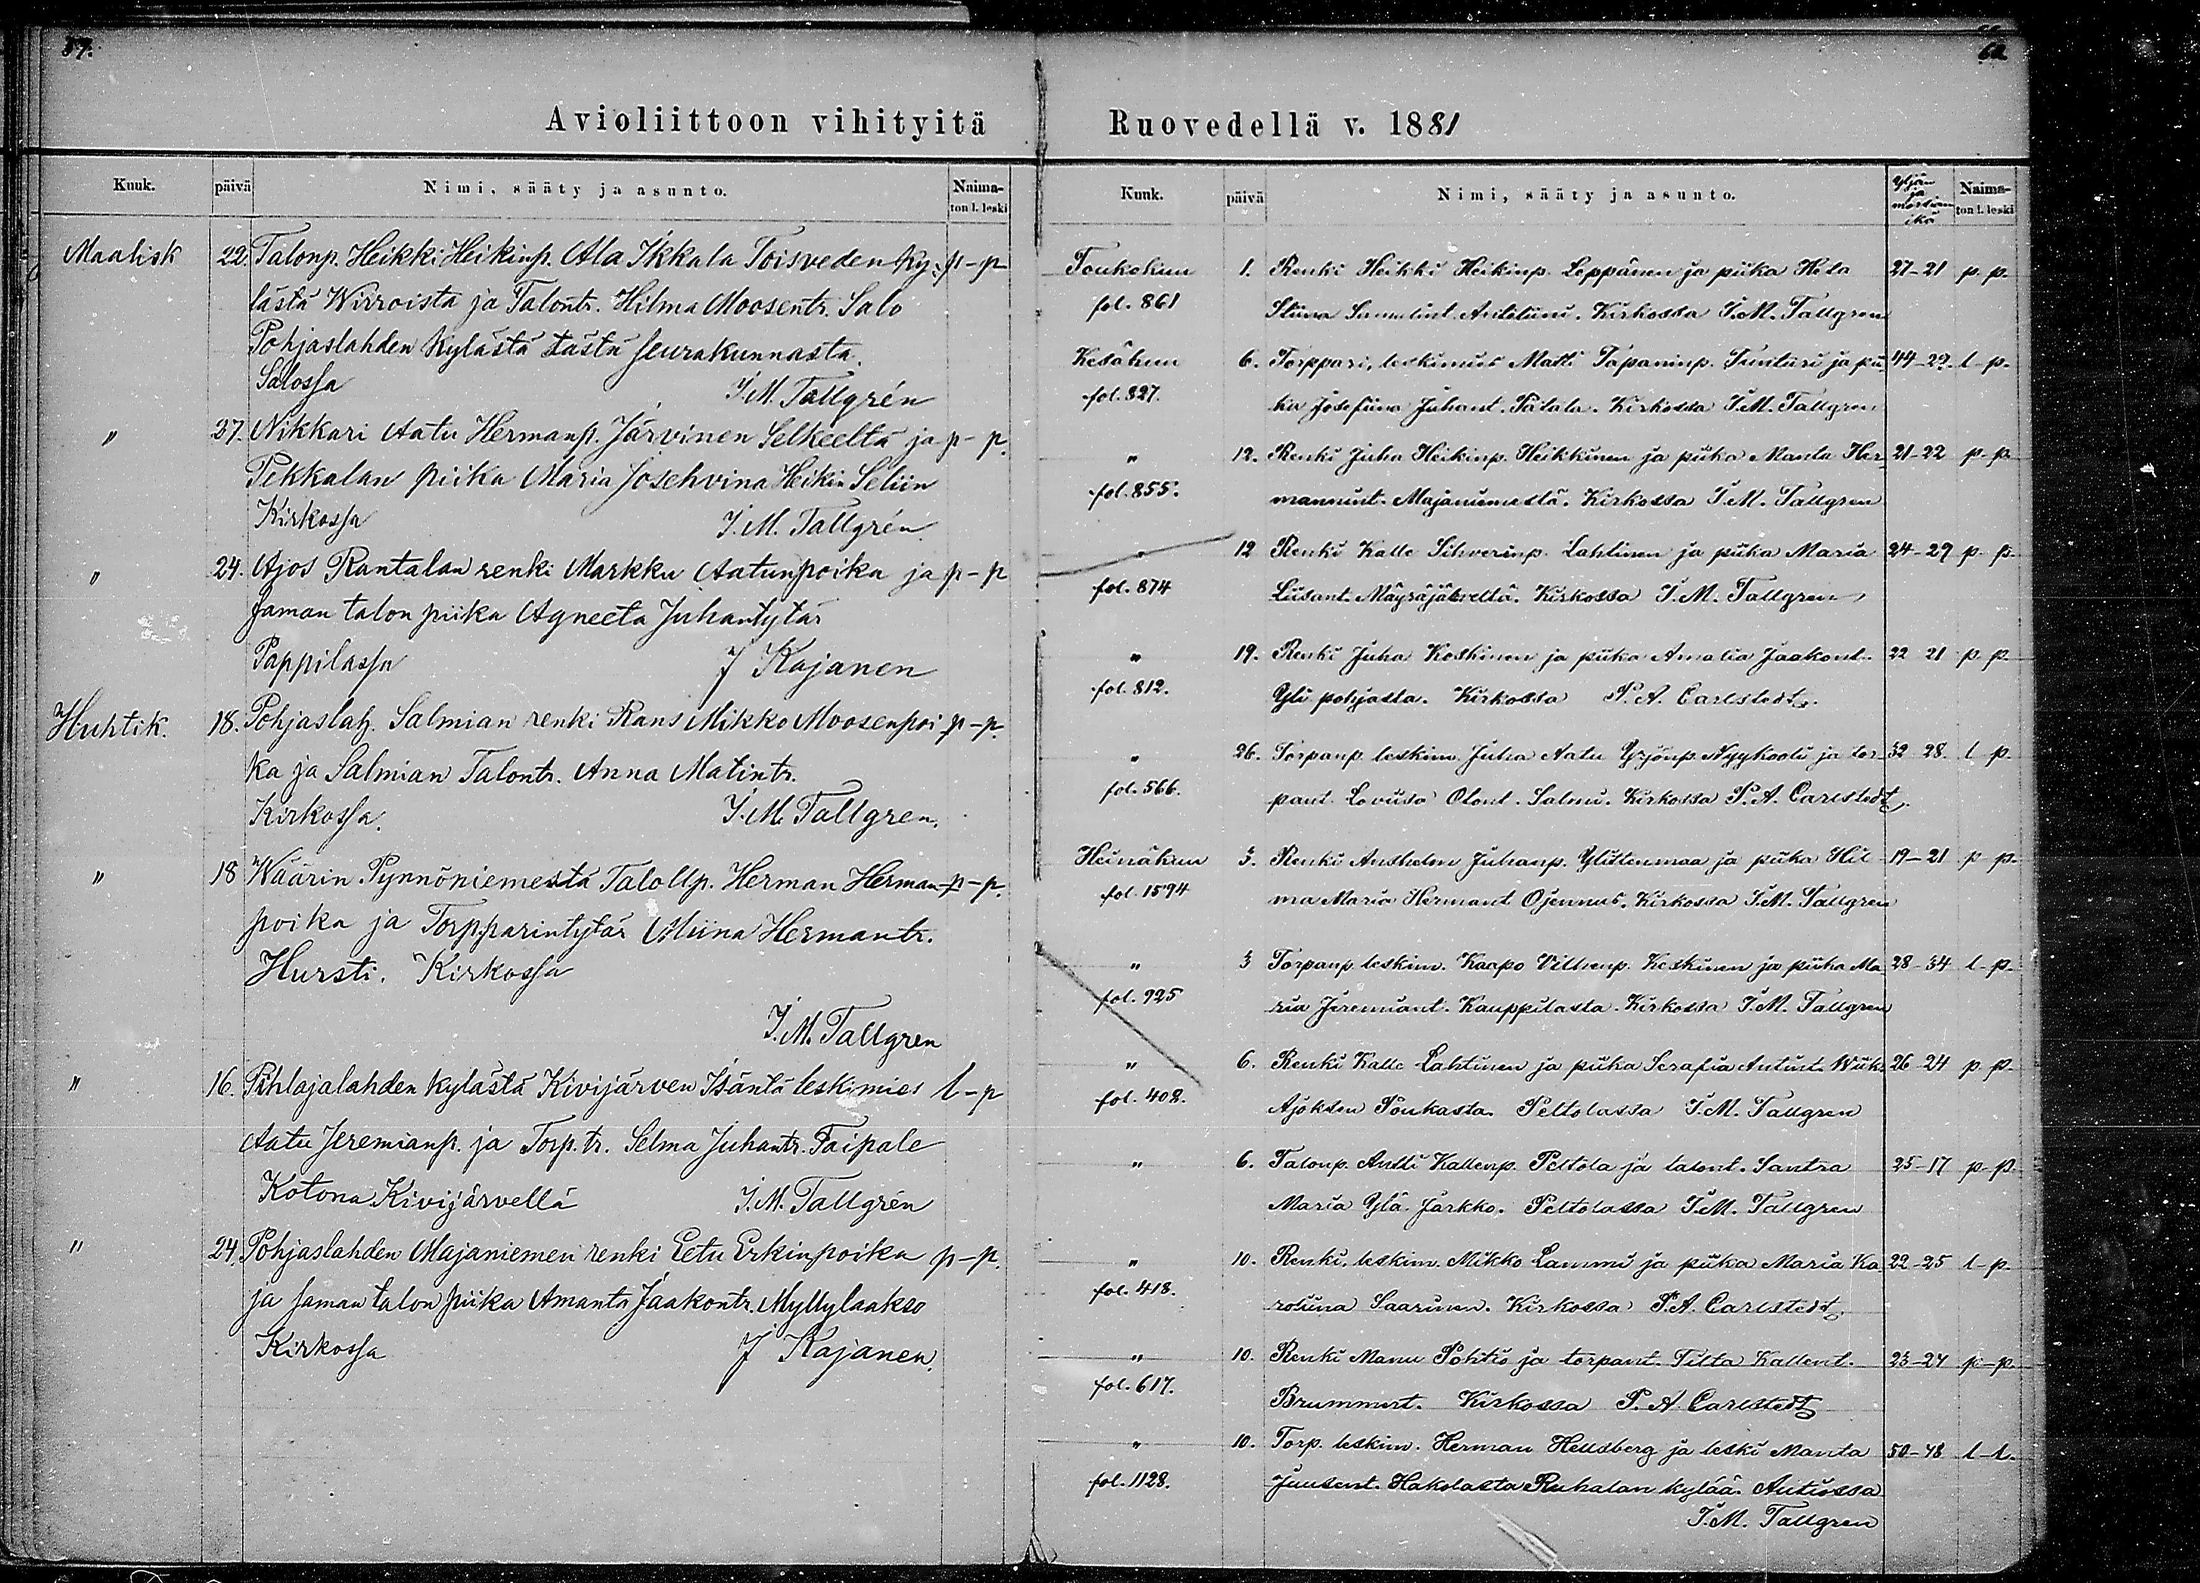 57.
62
Avioliittoon vihityitä Ruovedellä v. 1881
Kuuk. päivä Nimi, sääty ja asunto. Naima-
ton l. leski
Maalisk 22. Talonp. Heikki Heikinp. Ala Ikkala Toisveden ky- p-p
lästä Wirroista ja Talontr. Hilma Moosentr. Salo
Pohjaslahden kylästä tästä seurakunnasta.
Salossa I. M. Tallgrén
" 27. Nikkari Aatu Hermanp. Järvinen Selkeeltä ja p-p.
Pekkalan piika Maria Josehvina Heikin Seliin
Kirkossa I. M. Tallgrén.
" 24. Ajos Rantalan renki Markku Aatunpoika ja p-p
saman talon piika Agneeta Juhantytär
Pappilassa J Kajanen
Huhtik. 18. Pohjaslah. Salmian renki Rans Mikko Moosenpoi- p-p.
ka ja Salmian Talontr. Anna Matintr.
Kirkossa. I. M. Tallgren.
" 18 Wäärin Pynnöniemestä Talollp. Herman Herman- p-p.
poika ja Torpparintytär Miina Hermantr.
Hursti. Kirkossa
I. M. Tallgren
" 16. Pihlajalahden kylästä Kivijärven Isäntä leskimies l-p
Aatu Jeremianp. ja Torp. tr. Selma Juhantr. Taipale
Kotona Kivijärvellä I. M. Tallgrén
" 24. Pohjaslahden Majaniemen renki Eetu Erkinpoika p-p.
ja saman talon piika Amanta Jaakontr. Myllylaakso
Kirkossa J Kajanen.
Kuuk. päivä Nimi, sääty ja asunto. Yljän ja morsiam ikä Naima-
ton l. leski
Toukokuu 1. Renki Heikki Heikinp. Leppänen ja piika Heta 27-21 p. p.
fol. 861 Stiina Antt. Kirkossa I. M. Tallgren
Kesäkuu 6. Torppari, leskimies Matti Tapaninp. Tunturi ja pii- 44-29. l-p.
fol. 827. ka Josefiina Juhant. Kirkossa I. M. Tallgren
" 12. Renki Juha Heikinp. Heikkinen ja piika Manta Her- 21-22 p-p
fol. 855. mannint. Majaniemestä. Kirkossa I. M. Tallgren
" 12 Renki Kalle Sihverinp. Lahtinen ja piika Maria 24-29 p-p
fol. 874 Liisant. Mäyräjärveltä. Kirkossa I. M. Tallgren
" 19. Renki Juha Koskinen ja piika Amalia Jaakont. 22 21 p-p.
fol. 812. Yli pohjasta. Kirkossa P. A. Carlstedt.
" 26. Torpanp leskim. Juha Aatu Yrjönp. Nyykooli ja tor- 32-28. l-p.
fol. 566. pant. Loviisa Olont. Salmi. Kirkossa P. A. Carlstedt.
Heinäkuu 3. Renki Anshelm Juhanp. Ylistenmaa ja piika Hil- 19-21 p p.
fol. 1594 ma Maria Hermant Ojennus. Kirkossa I. M. Tallgren
" 3 Torpanp leskim. Kaapo Villenp. Keskinen ja piika Ma- 28-34 l-p.
fol. 925 ria Jeremiant. Kauppilasta. Kirkossa I. M. Tallgren
" 6. Renki Kalle Lahtinen ja piika Serafia Antint. 26-24 p p.
fol. 408. Ajoksen Poukasta. Peltolassa I. M. Tallgren
" 6. Talonp. Antti Kallenp. Peltola ja talont. Santra 25-17 p-p.
Maria Ylä Jarkko. Peltolassa I. M. Tallgren
" 10. Renki, leskim. Mikko Lammi ja piika Maria Ka- 22-25 l-p.
fol. 418. roliina Saarinen. Kirkossa P. A. Carlstedt.
" 10. Renki Manu Pohtio ja torpant. Tilta Kallent. 23-24 p-p.
fol. 617. Brummert. Kirkossa P. A. Carlstedt
" 10. Torp. leskim. Herman Hellsberg ja leski Manta 50-48 l-l.
fol. 1128. Juusent. Hakolasta Ruhalan kylää. Antiossa
I. M. Tallgren